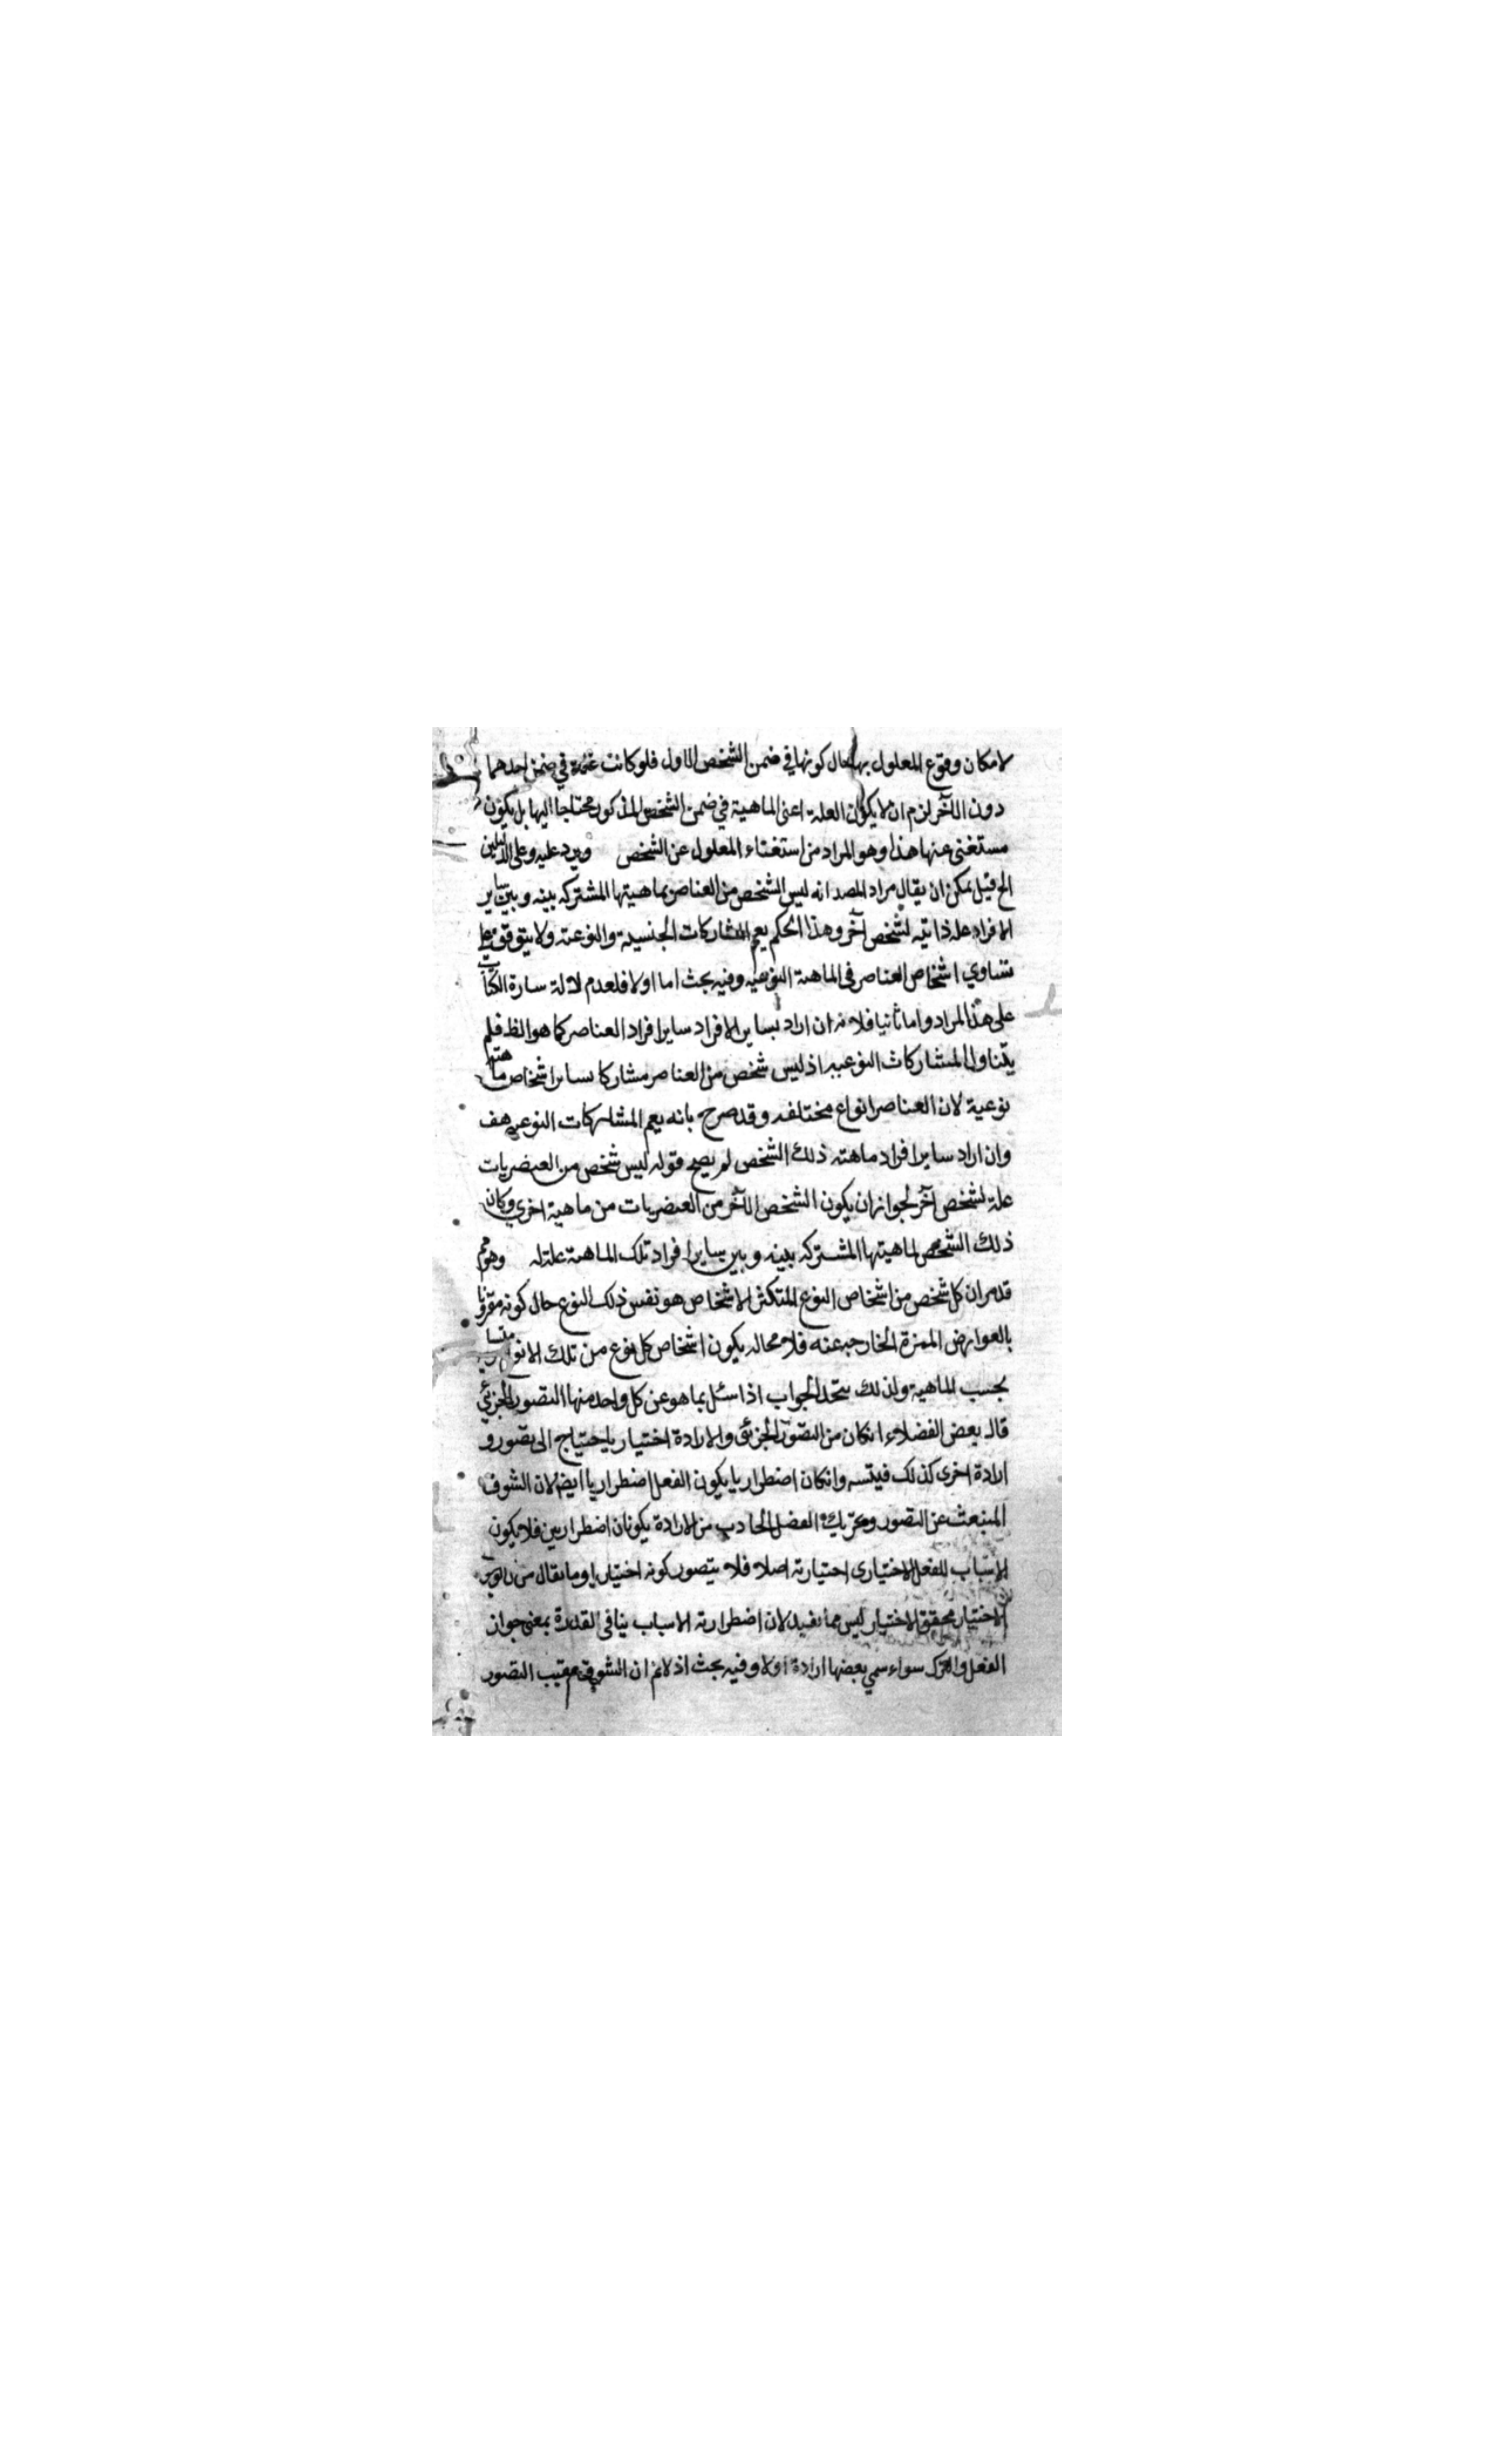 لامكان وقوع المعلول بها حال كونها في ضمن الشخص الاول فلو كانت علة في ضمن احدهما
دون الآخر لزم ان لا يكون العلة اعنى الماهية في ضمن الشخص المذكور محتاجا اليها بل يكون
مستغنى عنها هذا وهو المراد من استغناء المعلول عن الشخص ويرد عليه وعلى الدليلين
الخ قيل يمكن ان يقال مراد المصد انه ليس الشخص من العناصر بماهيتها المشتركه بينه وبين ساير
الافراد علة ذاتيه لشخص آخر وهذا الحكم يعم المشاركات الجنسية والنوعية ولا يتوقف على
تساوي اشخاص العناصر في الماهية النوعيه وفيه بحث اما اولا فلعدم دلالة عبارة الكتاب
على هذا المراد واما ثانيا فلانه ان اراد بساير الافراد ساير افراد العناصر كما هو الظ فلم
يتناول المشاركات النوعيه اذ ليس شخص من العناصر مشاركا لساير اشخاص ماهيته
نوعية لان العناصر انواع مختلفه وقد صرح بانه يعم المشاركات النوعيه هف
وان اراد ساير افراد ماهيته ذلك الشخص لم يصح قوله ليس شخص من العنصريات
علة لشخص آخر لجواز ان يكون الشخص الآخر من العنصريات من ماهية اخرى وكان
ذلك الشخص لماهيتها المشتركه بينه وبين ساير افراد تلك الماهية علة له وهو
قد مر ان كل شخص من اشخاص النوع المتكثر الاشخاص هو نفس ذلك النوع حال كونه مقرونا
بالعوارض المميزة الخارجيه عنه فلا محاله يكون اشخاص كل نوع من تلك الانواع
بحسب الماهية ولذلك يتحد الجواب اذا سئل بما هو عن كل واحد منها التصور الجزئي
قال بعض الفضلاء ان كان من التصور الجزئي والارادة اختياريا يحتاج الى تصور و
ارادة اخرى كذلك فيتسه وان كان اضطراريا يكون الفعل اضطراريا ايضا لان الشوق
المنبعث عن التصور وتحريك العضل الحادث من الارادة يكونان اضطراريين فلا يكون
الاسباب للفعل الاختياري اختيارية اصلا فلا يتصور كونه اختياريا وما يقال من ان
الاختيار محقق الاختيار ليس مما يفيد لان اضطرارية الاسباب ينافي القدرة بمعنى جواز
الفعل والترك سواء سمي بعضها ارادة اولا وفيه بحث اذ لا نم ان الشوق عقيب التصور